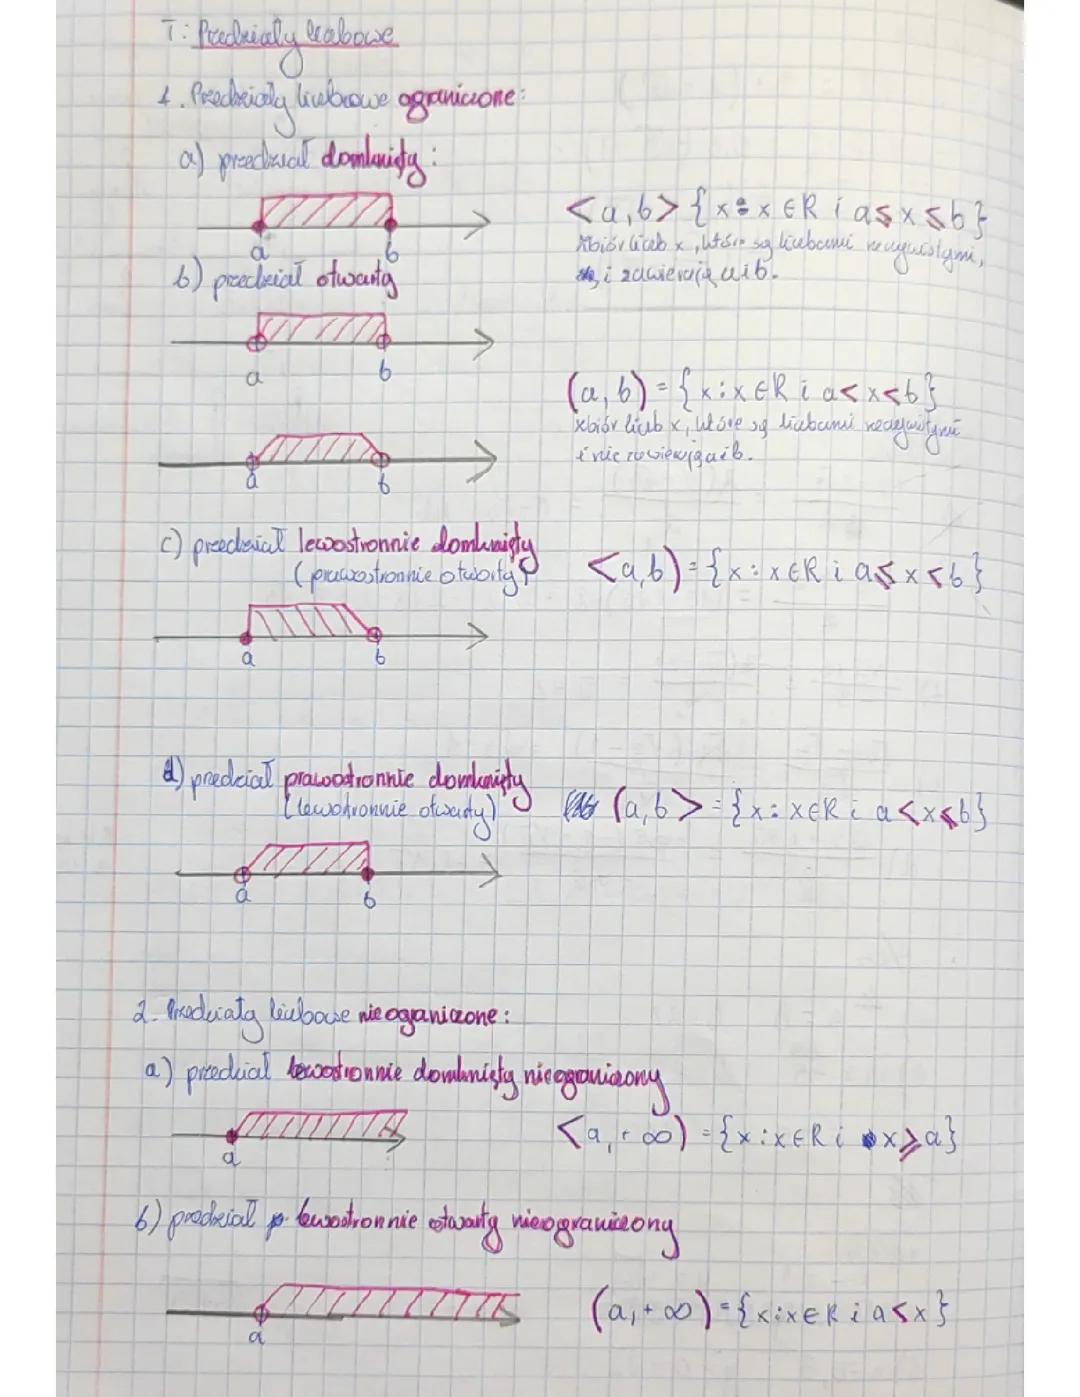 T: Przedziały liczbowe
1. Przedziały liczbowe ograniczone:
a) przedział domknięty:
a b
<a,b> { x : x ∈ R i a ≤ x ≤ b }
Zbiór liczb x, które są liczbami rzeczywistymi,
i zawierają a i b.
b) przedział otwarty
a b
(a, b) = { x : x ∈ R i a < x < b }
zbiór liczb x, które są liczbami rzeczywistymi
i nie zawierają a i b.
a b
c) przedział lewostronnie domknięty
(prawostronnie otwarty)
<a,b) = { x : x ∈ R i a ≤ x < b }
a b
d) przedział prawostronnie domknięty
(lewostronnie otwarty)
(a,b> = { x : x ∈ R i a < x ≤ b }
a b
2. Przedziały liczbowe nieograniczone:
a) przedział lewostronnie domknięty nieograniczony
<a, + ∞) = { x : x ∈ R i x ≥ a }
a
b) przedział lewostronnie otwarty nieograniczony
(a, + ∞) = { x : x ∈ R i a < x }
a